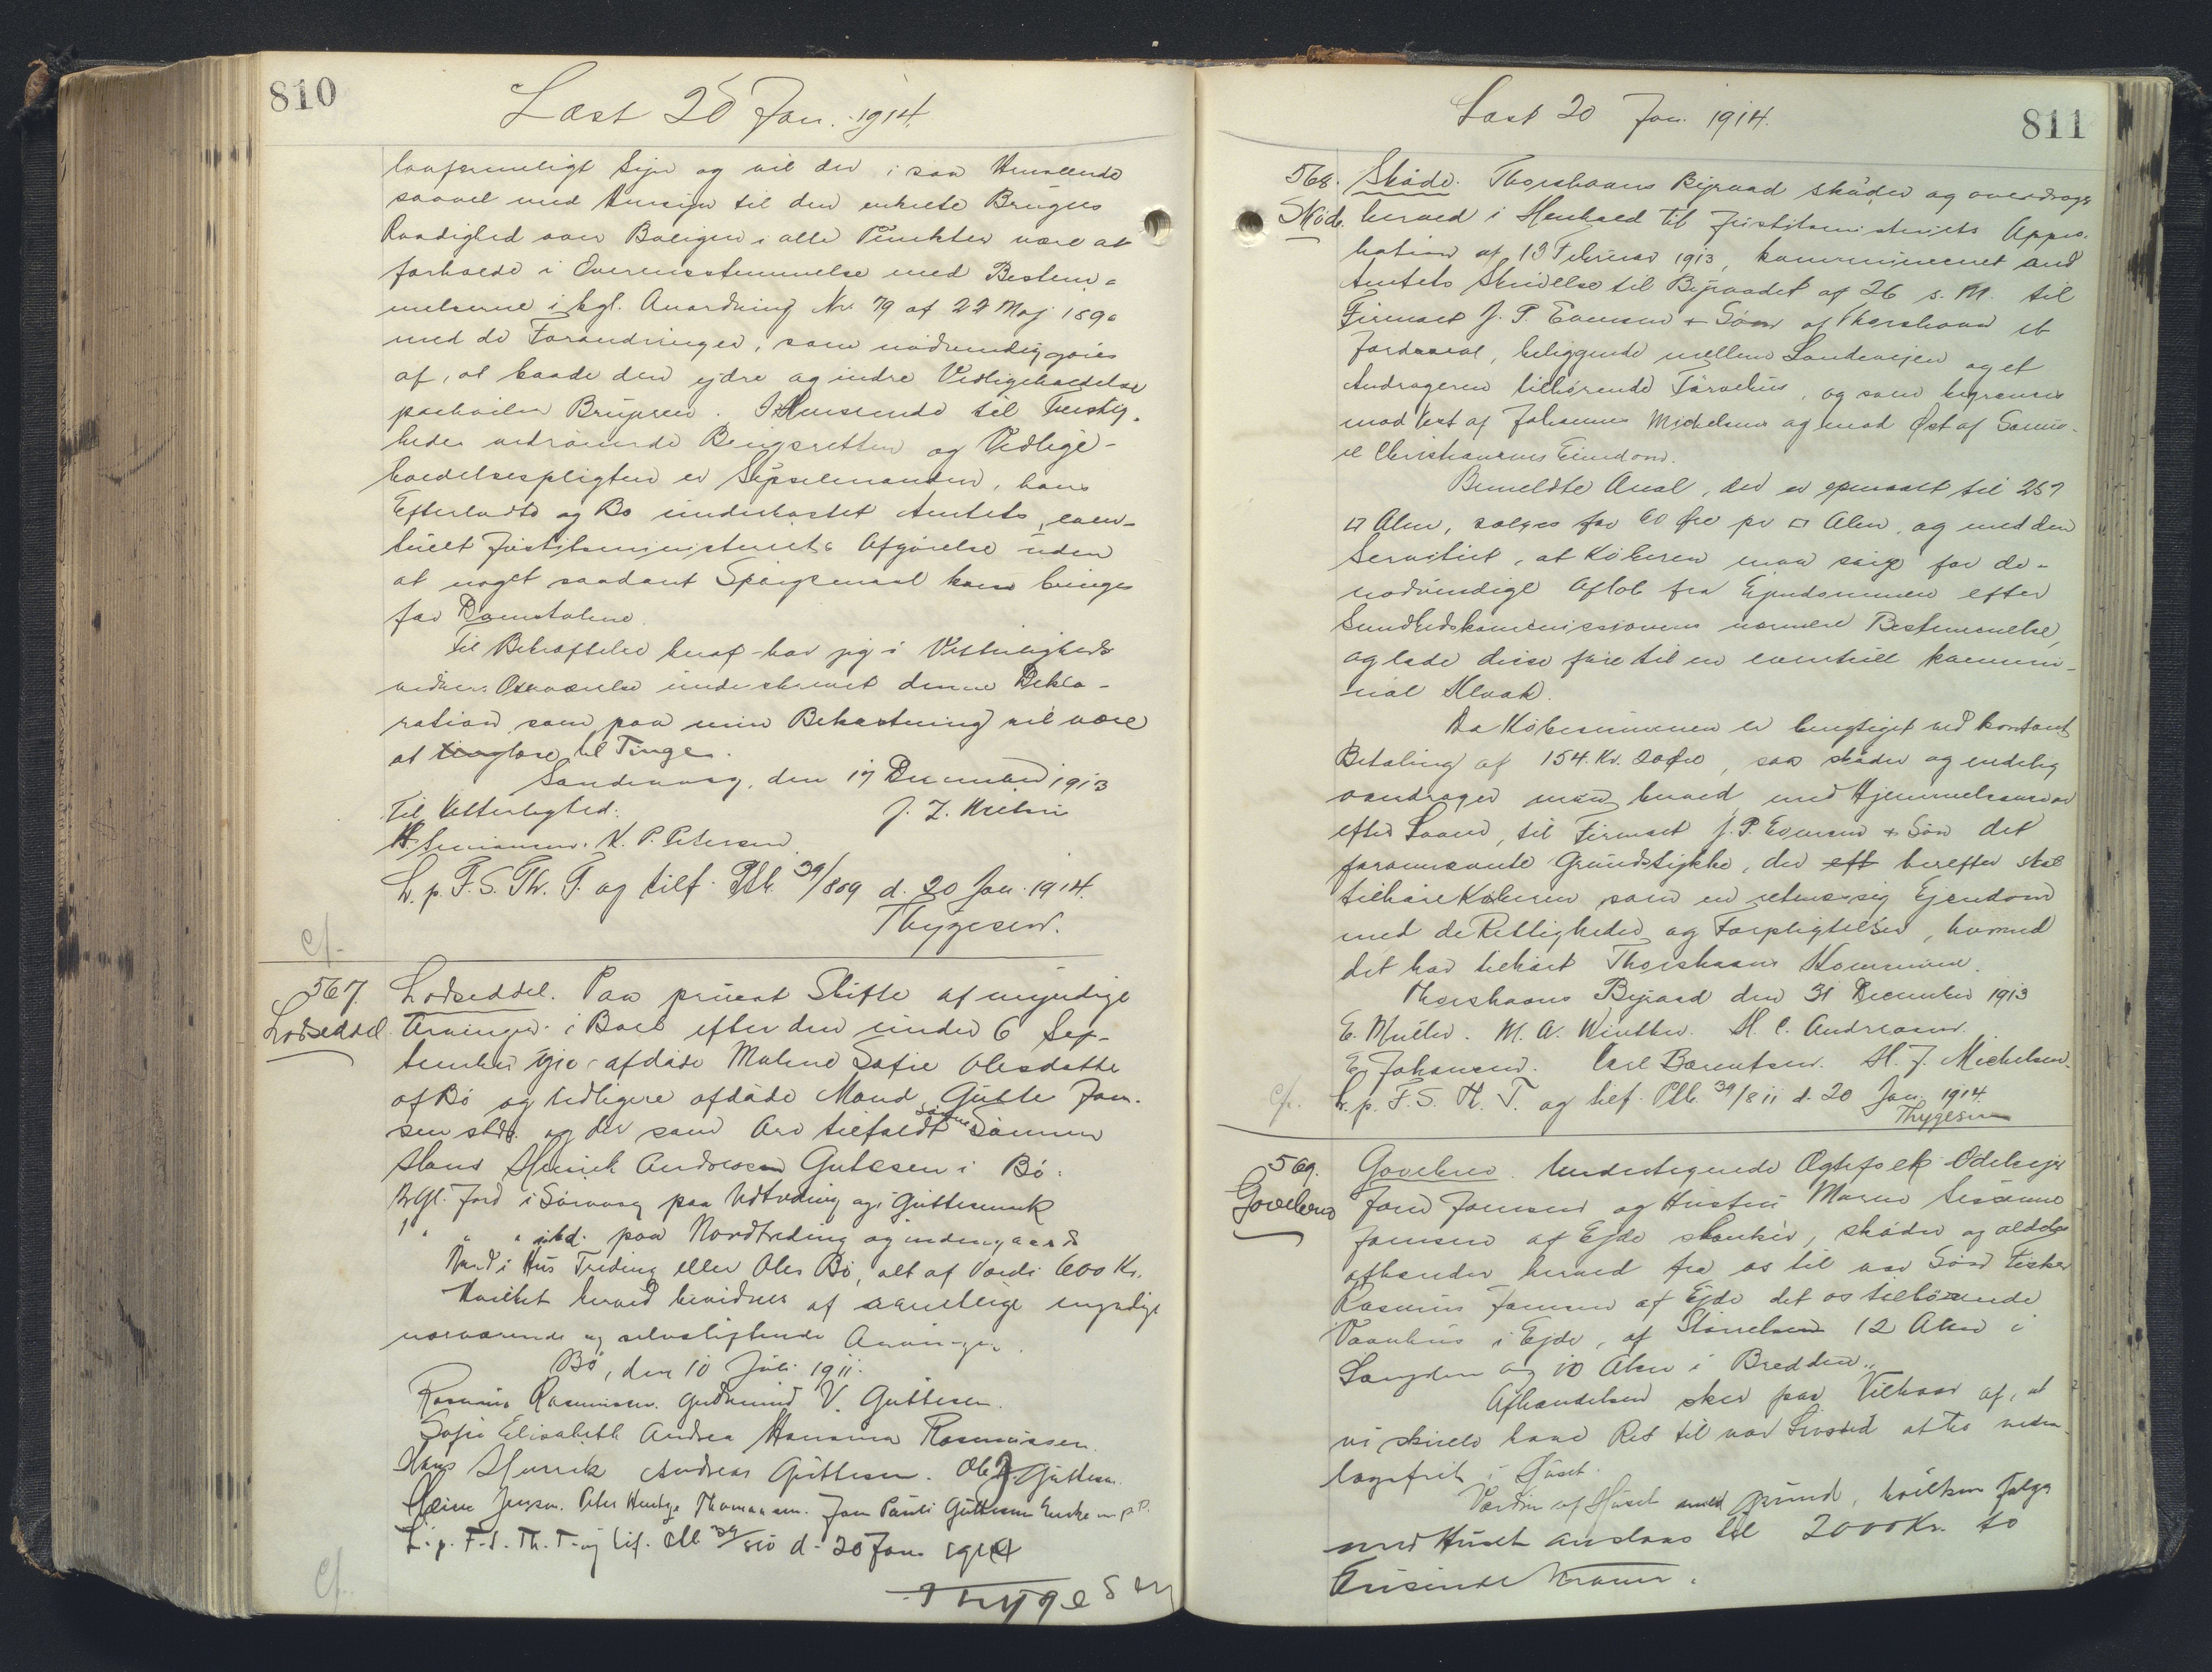 810
Læst 20 Jan. 1914.
lovformeligt Syn og vil der i saa Henseende
saavel med Hensyn til den enkelte Brugers
Raadighed over Boligen i alle Punkter være at
forholde i Overensstemmelse med Bestem-
melserne i kgl. Anordning Nr. 79 af 22 Maj 189
med de Forandringer, som nødvendiggøres
af, at baade den ydre og indre Vedligeholdelse
paahviler Brugeren. I Henseende til Tvistig-
heder vedrørende Brugsretten og Vedlige-
holdelsespligten er Sysselmanden, hans
Efterladte og Bo underkastet Amtets, even-
tuelt Justitsministeriets Afgørelse uden
at noget saadant Spørgsmaal kan bringes
for Domstolene.
Til Bekræftelse heraf har jeg i Vitterligheds
vidners Overværelse underskrevet denne Dekla-
ration som paa min Bekostning vil være
at læse til Tinge.
Sandevaag, den 17 December 1913
Til Vitterlighed:
K. P. Petersen
L. p. F. S. Th. T. og tilf. Ptb. 39/809 d. 20 Jan. 1914.
Thygesen.
Cf.
567.
Lodseddel
Lodseddel. Paa privat Skifte af myndige
Arvinger i Boet efter den under 6 Sep-
tember 1910 afdøde Malene Sofie Olesdatter
af Bø og tidligere afdøde Mand Gutte Joen-
sen sstds. og der som Arv tilfaldt Sønnen
Hans Henrik Andreasen Guttesen i Bø:
Gl. Jord i Sørvaag paa Udtræding og i Guttesmark
1 " " " ibd. paa Nordtreding og indengaards
Nord i Hus Treding eller Oles Bø, alt af Værdi 600 Kr.
Hvilket herved bevidnes af samtlige myndige
nærværende og selvskiftende Arvinger.
Bø, den 10 Juli 1911.
Rasmus Rasmussen. Gudmund V. Guttesen.
Sofie Elisabeth Andrea Hansina Rasmussen.
Hans Henrik Andreas Guttesen. Ole J. Guttesen.
Jensen. Peter Hentze Thomassen. Joen Pauli Guttesen Enke m. p. P.
L. p. F. S. Th. T. og tilf. Ptb 39/810 d. 20 Jan 1914
Thygesen
Cf.
Læst 20 Jan. 1914.
811
568.
Skøde
Skøde. Thorshavns Byraad skøder og overdrager
herved i Henhold til Justitsministeriets Appro-
bation af 13 Februar 1913, kommuniceret ved
Amtets Skrivelse til Byraadet af 26 s. M. til
Firmaet J. P. Evensen & Søn af Thorshavn et
Jordareal, beliggende mellem Landevejen og et
Andrageren tilhørende Tørvehus, og som begrænses
mod Vest af Johannes Michelsens og mod Øst af Samu-
el Christiansens Eiendom.
Bemeldte Areal, der er opmaalt til 257
□ Alen, sælges for 60 Øre pr □ Alen, og med den
Servitut, at Køberen maa sørge for de
nødvendige Afløb fra Ejendommen efter
Sundhedskommissionens nærmere Bestemmelse,
og lade disse føre til en eventuel kommu-
nal Kloak.
Da Købesummen er berigtiget ved kontant
Betaling af 154 Kr. 20 Øre, saa skøder og endelig
overdrager man herved med Hjemmelsansvar
efter Loven, til Firmaet J. P. Evensen & Søn det
forannævnte Grundstykke, der eft herefter skal
tilhøre Køberen som en retmæssig Ejendom
med de Rettigheder og Forpligtelser, hvormed
det har tilhørt Thorshavns Kommune.
Thorshavns Byraad den 31 December 1913
E. Müller. M. A. Winther. H. C. Andreasen.
E. Johansen. Carl Bærentsen. H. J. Michelsen.
L. p. F. S. Th. T. og tilf. Ptb. 39/811 d. 20 Jan. 1914.
Thygesen
Cf.
569.
Gavebrev
Gavebrev. Undertegnede Ægtefolk Odelsejer
Joen Joensen og Hustru Maren Susanne
Joensen af Ejde skænker, skøder og aldeles
afhænder herved fra os til vor Søn Fisker
Rasmus Joensen af Ejde det os tilhørende
Vaanhus i Ejde, af Størrelsen 12 Alen i
Længden og 10 Alen i Bredden.
Afhændelsen sker paa Vilkaar af, at
vi skulle have Ret til vor Livstid at bo veder-
lagsfrit i Huset.
Værdien af Huset med Grund, hvilken følger
med Huset anslaas til 2000 Kr. to
Tusinde Kroner.